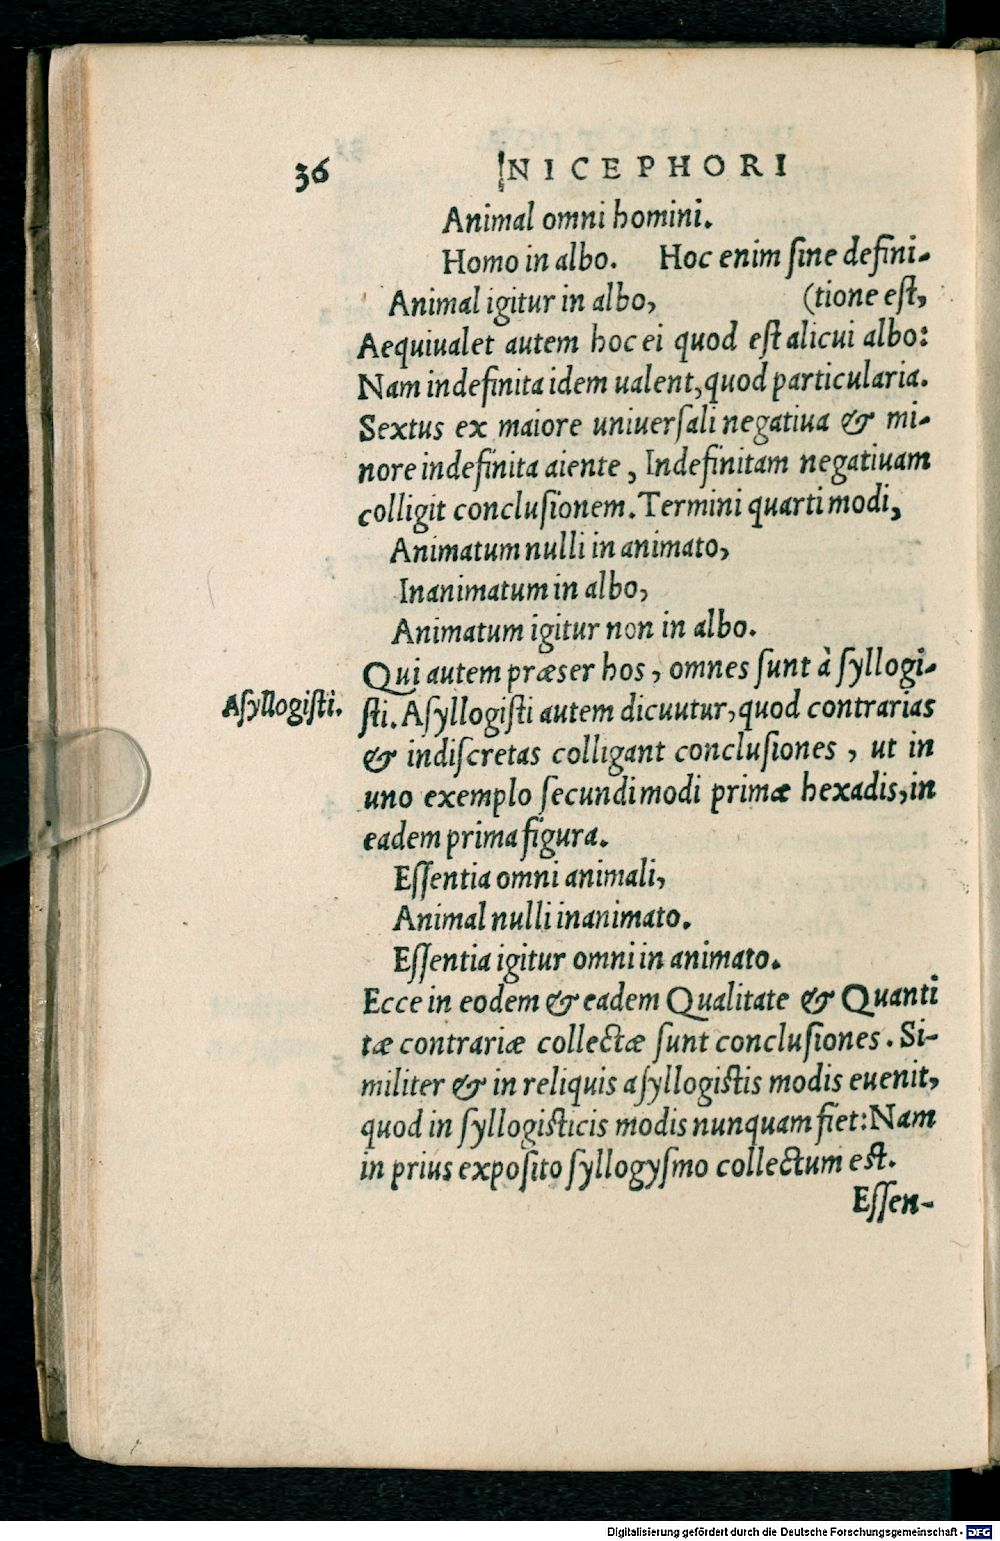 36 NICEPHORI
Animal omni homini.
Homo in albo. Hoc enim ſine defini-
Animal igitur in albo, (tione eſt,
Aequiualet autem hoc ei quod eſt alicui albo:
Nam indefinita idem ualent, quod particularia.
Sextus ex maiore uniuerſali negatiua & mi-
nore indefinita aiente, Indefinitam negatiuam
colligit concluſionem. Termini quarti modi,
Animatum nulli in animato,
Inanimatum in albo,
Animatum igitur non in albo.
Qui autem præser hos, omnes ſunt à ſyllogi-
Aſyllogiſti. ſti. Aſyllogiſti autem dicuutur, quod contrarias
& indiſcretas colligant concluſiones, ut in
uno exemplo ſecundi modi primæ hexadis, in
eadem prima figura.
Eſſentia omni animali,
Animal nulli inanimato.
Eſſentia igitur omni in animato.
Ecce in eodem & eadem Qualitate & Quanti
tæ contrariæ collectæ ſunt concluſiones. Si-
militer & in reliquis aſyllogiſtis modis euenit,
quod in ſyllogiſticis modis nunquam fiet: Nam
in prius expoſito ſyllogyſmo collectum eſt.
Eſſen-
Digitalisierung gefördert durch die Deutsche Forschungsgemeinschaft - DFG